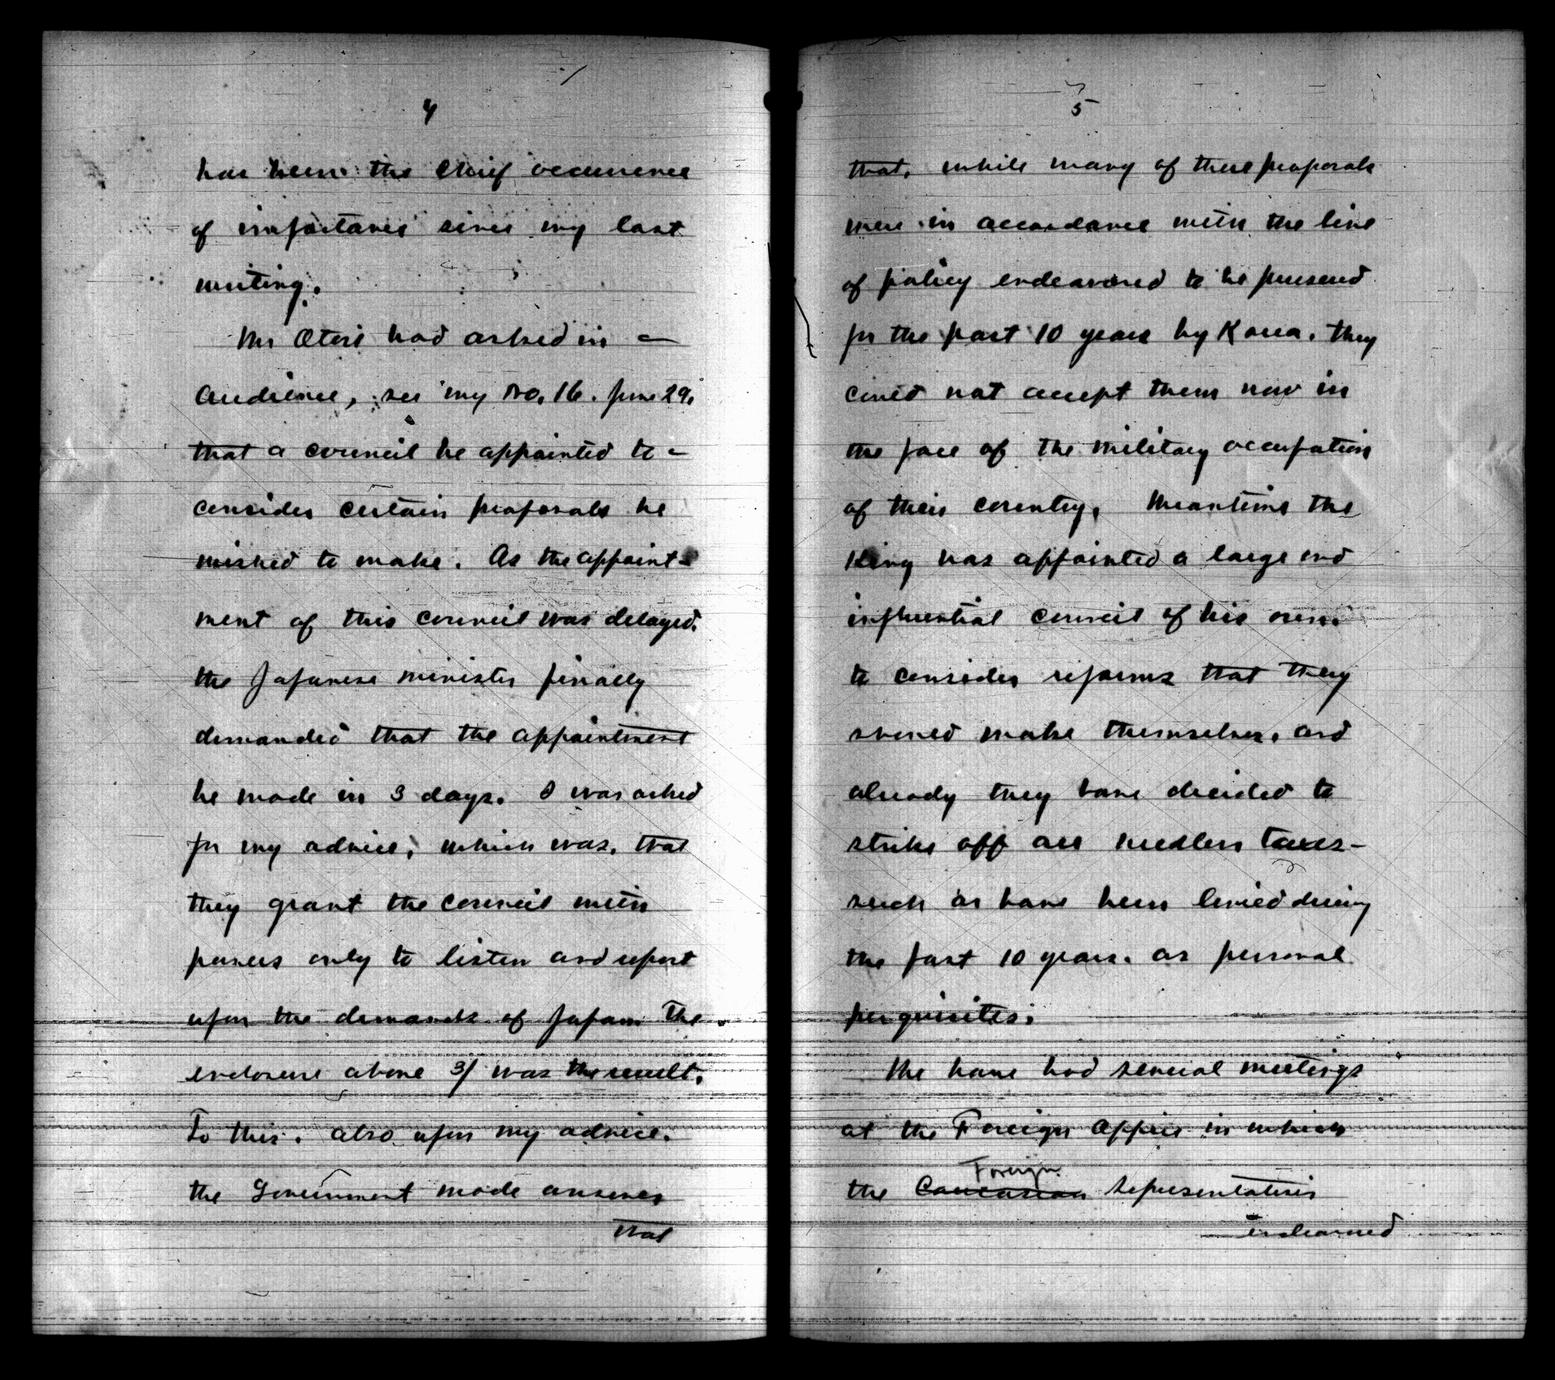 4
has been the chief occurrence
of importance since my last
writing.
Mr Otori had asked in
audience, see my No. 16. June 29,
that a council be appointed to
consider certain proposals he
wished to make. As the appoint-
ment of this council was delayed.
the Japanese minister finally
demanded that the appointment
be made in 3 days. I was asked
for my advice, which was, that
they grant the council with
powers only to listen and report
upon the demands of Japan. The
enclosure above 3/ was the result.
To this. also upon my advice.
the Government made answer
that
5
that, while many of these proposals
were in accordance with the line
of policy endeavored to be pursued
for the past 10 years by Korea. they
could not accept them now in
the face of the military occupation
of their country. Meantime the
King has appointed a large and
influential council of his own.
to consider reforms that they
should make themselves. and
already they have decided to
strike off all needless taxes-
such as have been levied during
the past 10 years. as personal
perquisites.
We have had several meetings
at the Foreign Office in which
Foreign
the Caucasian representatives
endeavored